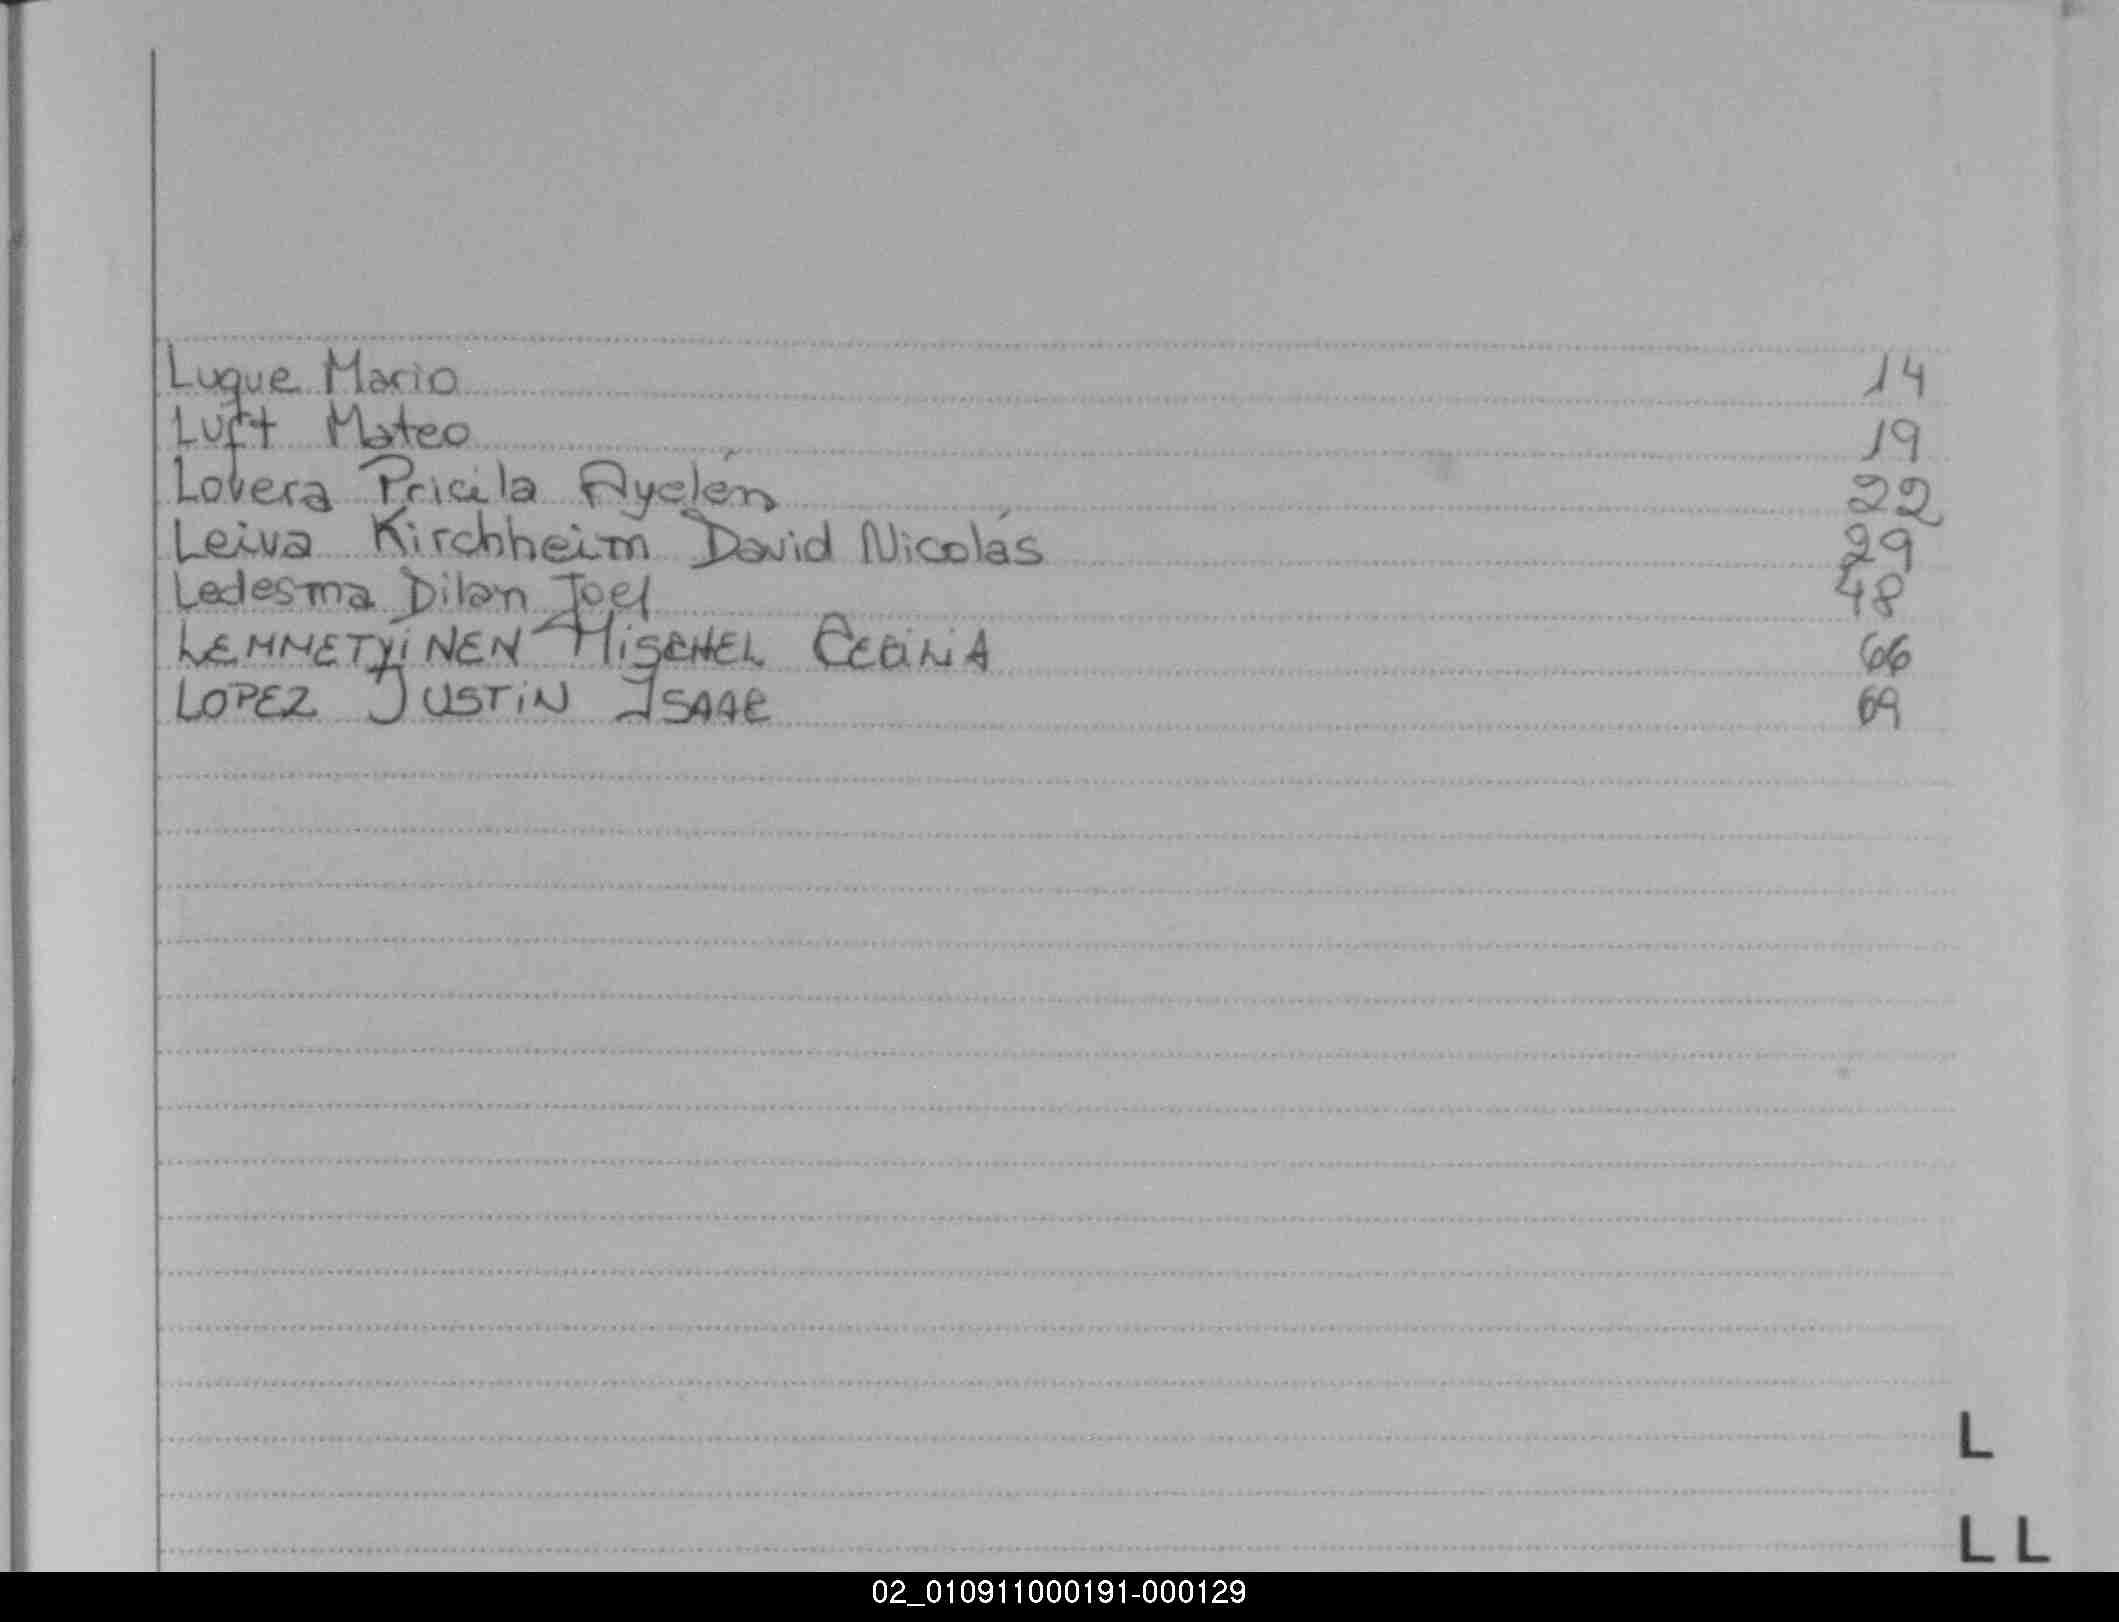 Luque Mario 14
Luft Mateo 19
Lovera Pricila Ayelén 22
Leiva Kirchheim David Nicolás 29
Ledesma Dilan Joel 48
LEMMETYiNEN MiSCHEL CECiLiA 66
LOPEZ JUSTiN ISAAC 69
L
LL
02_010911000191-000129